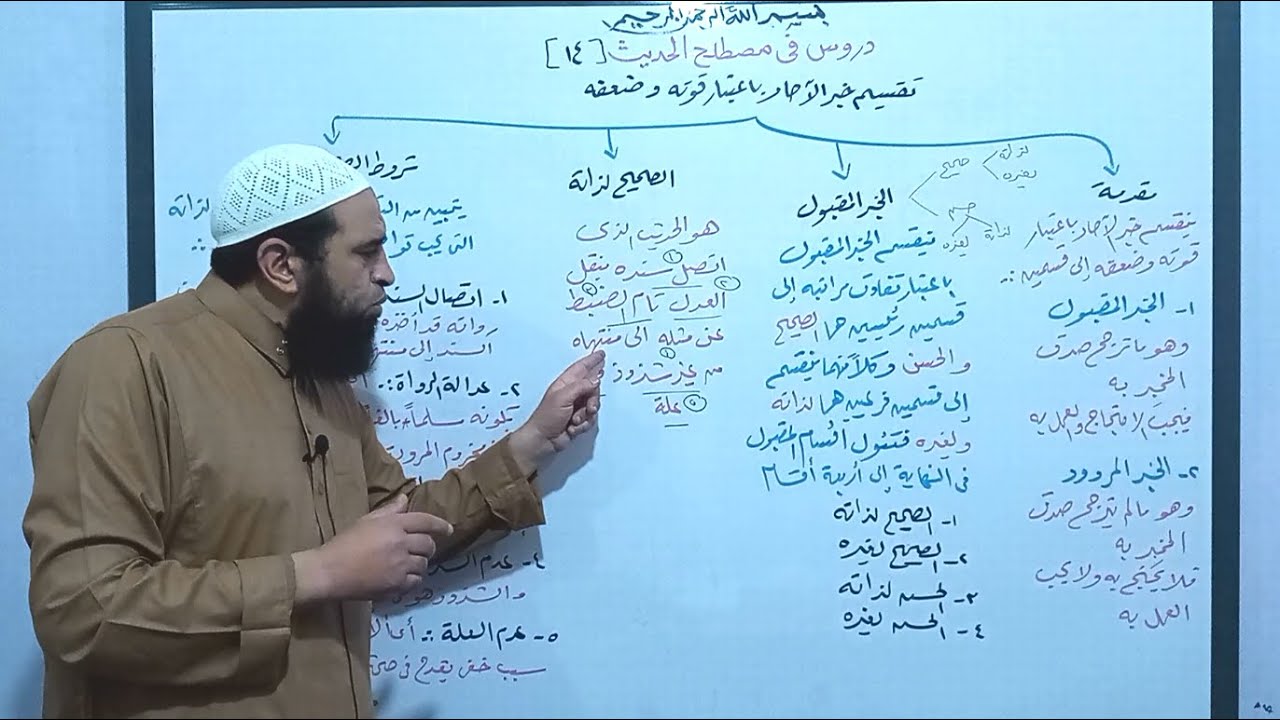 بسم الله الرحمن الرحيم
دروس في مصطلح الحديث [١٤]
تقسيم خبر الآحاد باعتبار قوته وضعفه
مقدمة
ينقسم خبر الآحاد باعتبار
قوته وضعفه إلى قسمين :.
١- الخبر المقبول
وهو ما ترجح صدق
المخبر به
فيجب الاحتجاج والعمل به
٢- الخبر المردود
وهو ما لم يترجح صدق
المخبر به
فلا يحتج به ولا يجب
العمل به
صحيح
لذاته
لغيره
حسن
لذاته
لغيره
الخبر المقبول
ينقسم الخبر المقبول
باعتبار تفاوت مراتبه إلى
قسمين رئيسين هما الصحيح
والحسن وكلاً منهما ينقسم
إلى قسمين فرعيين هما لذاته
ولغيره فتئول أقسام المقبول
في النهاية إلى أربعة أقسام
١- الصحيح لذاته
٢- الصحيح لغيره
٣- الحسن لذاته
٤- الحسن لغيره
الصحيح لذاته
هو الحديث الذى
اتصل سنده بنقل
العدل تام الضبط
عن مثله إلى منتهاه
من غير شذوذ
علة
شروط
يتبين من
لذاته
التى يجب
١- اتصال
رواته قد أخذه
السند إلى
٢- عدالة الرواة :.
بكونه مسلماً
مخروم
٤- عدم
والشذوذ هو
٥- عدم العلة :.
سبب خفى يقدح فى